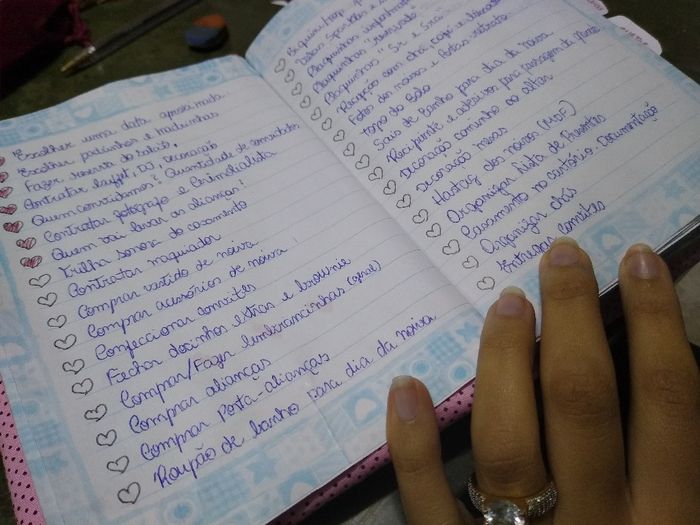 Escolher uma data aproximada.
Escolher padrinhos e madrinhas
Fazer reserva do
Contratar buffet, DJ, Decoração
Quem convidamos? Quantidade de convidados
Contratar fotógrafo e Cinegrafista
Quem vai levar as alianças?
Trilha sonora do casamento
Contratar maquiador
Comprar vestido de noiva
Comprar acessórios de noiva
Confeccionar convites
Fechar docinhos extras e brownie
Comprar/Fazer lembrancinhas (geral)
Comprar alianças
Comprar Porta-alianças
Roupão de banho Para dia da noiva
Plaquinhas
Plaquinhas
Plaquinhas "Sr e Sra"
Recepção com chá, café e
Fotos dos noivos e Portas retrato
Topo do Bolo
Sais de banho para dia da noiva
Recipiente e adesivos para
Decoração caminho ao altar
Decoração mesas
Hastag dos noivos (MDF)
Organizar lista de Presentes
Casamento no cartório. Documentação
Organizar chás
Entregar convites